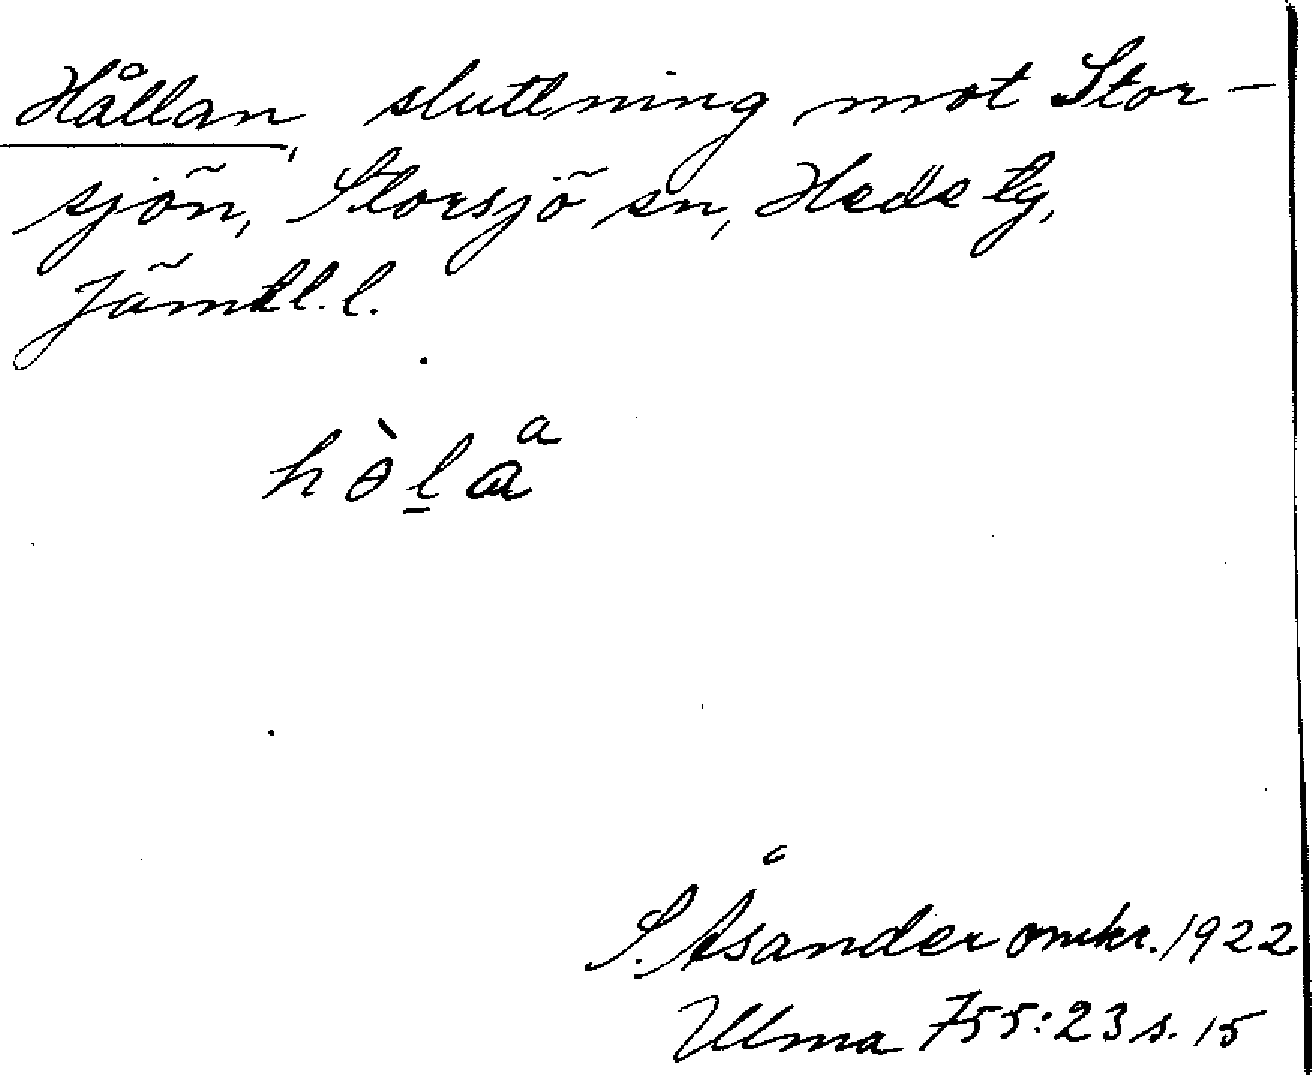 Hållan, sluttning mot Stor-
sjön, Storsjö sn, Hede tg,
Jämtl. l.
hɵ̀l̠aᵃ
S. Åsander omkr. 1922
Ulma 755:23 s. 15